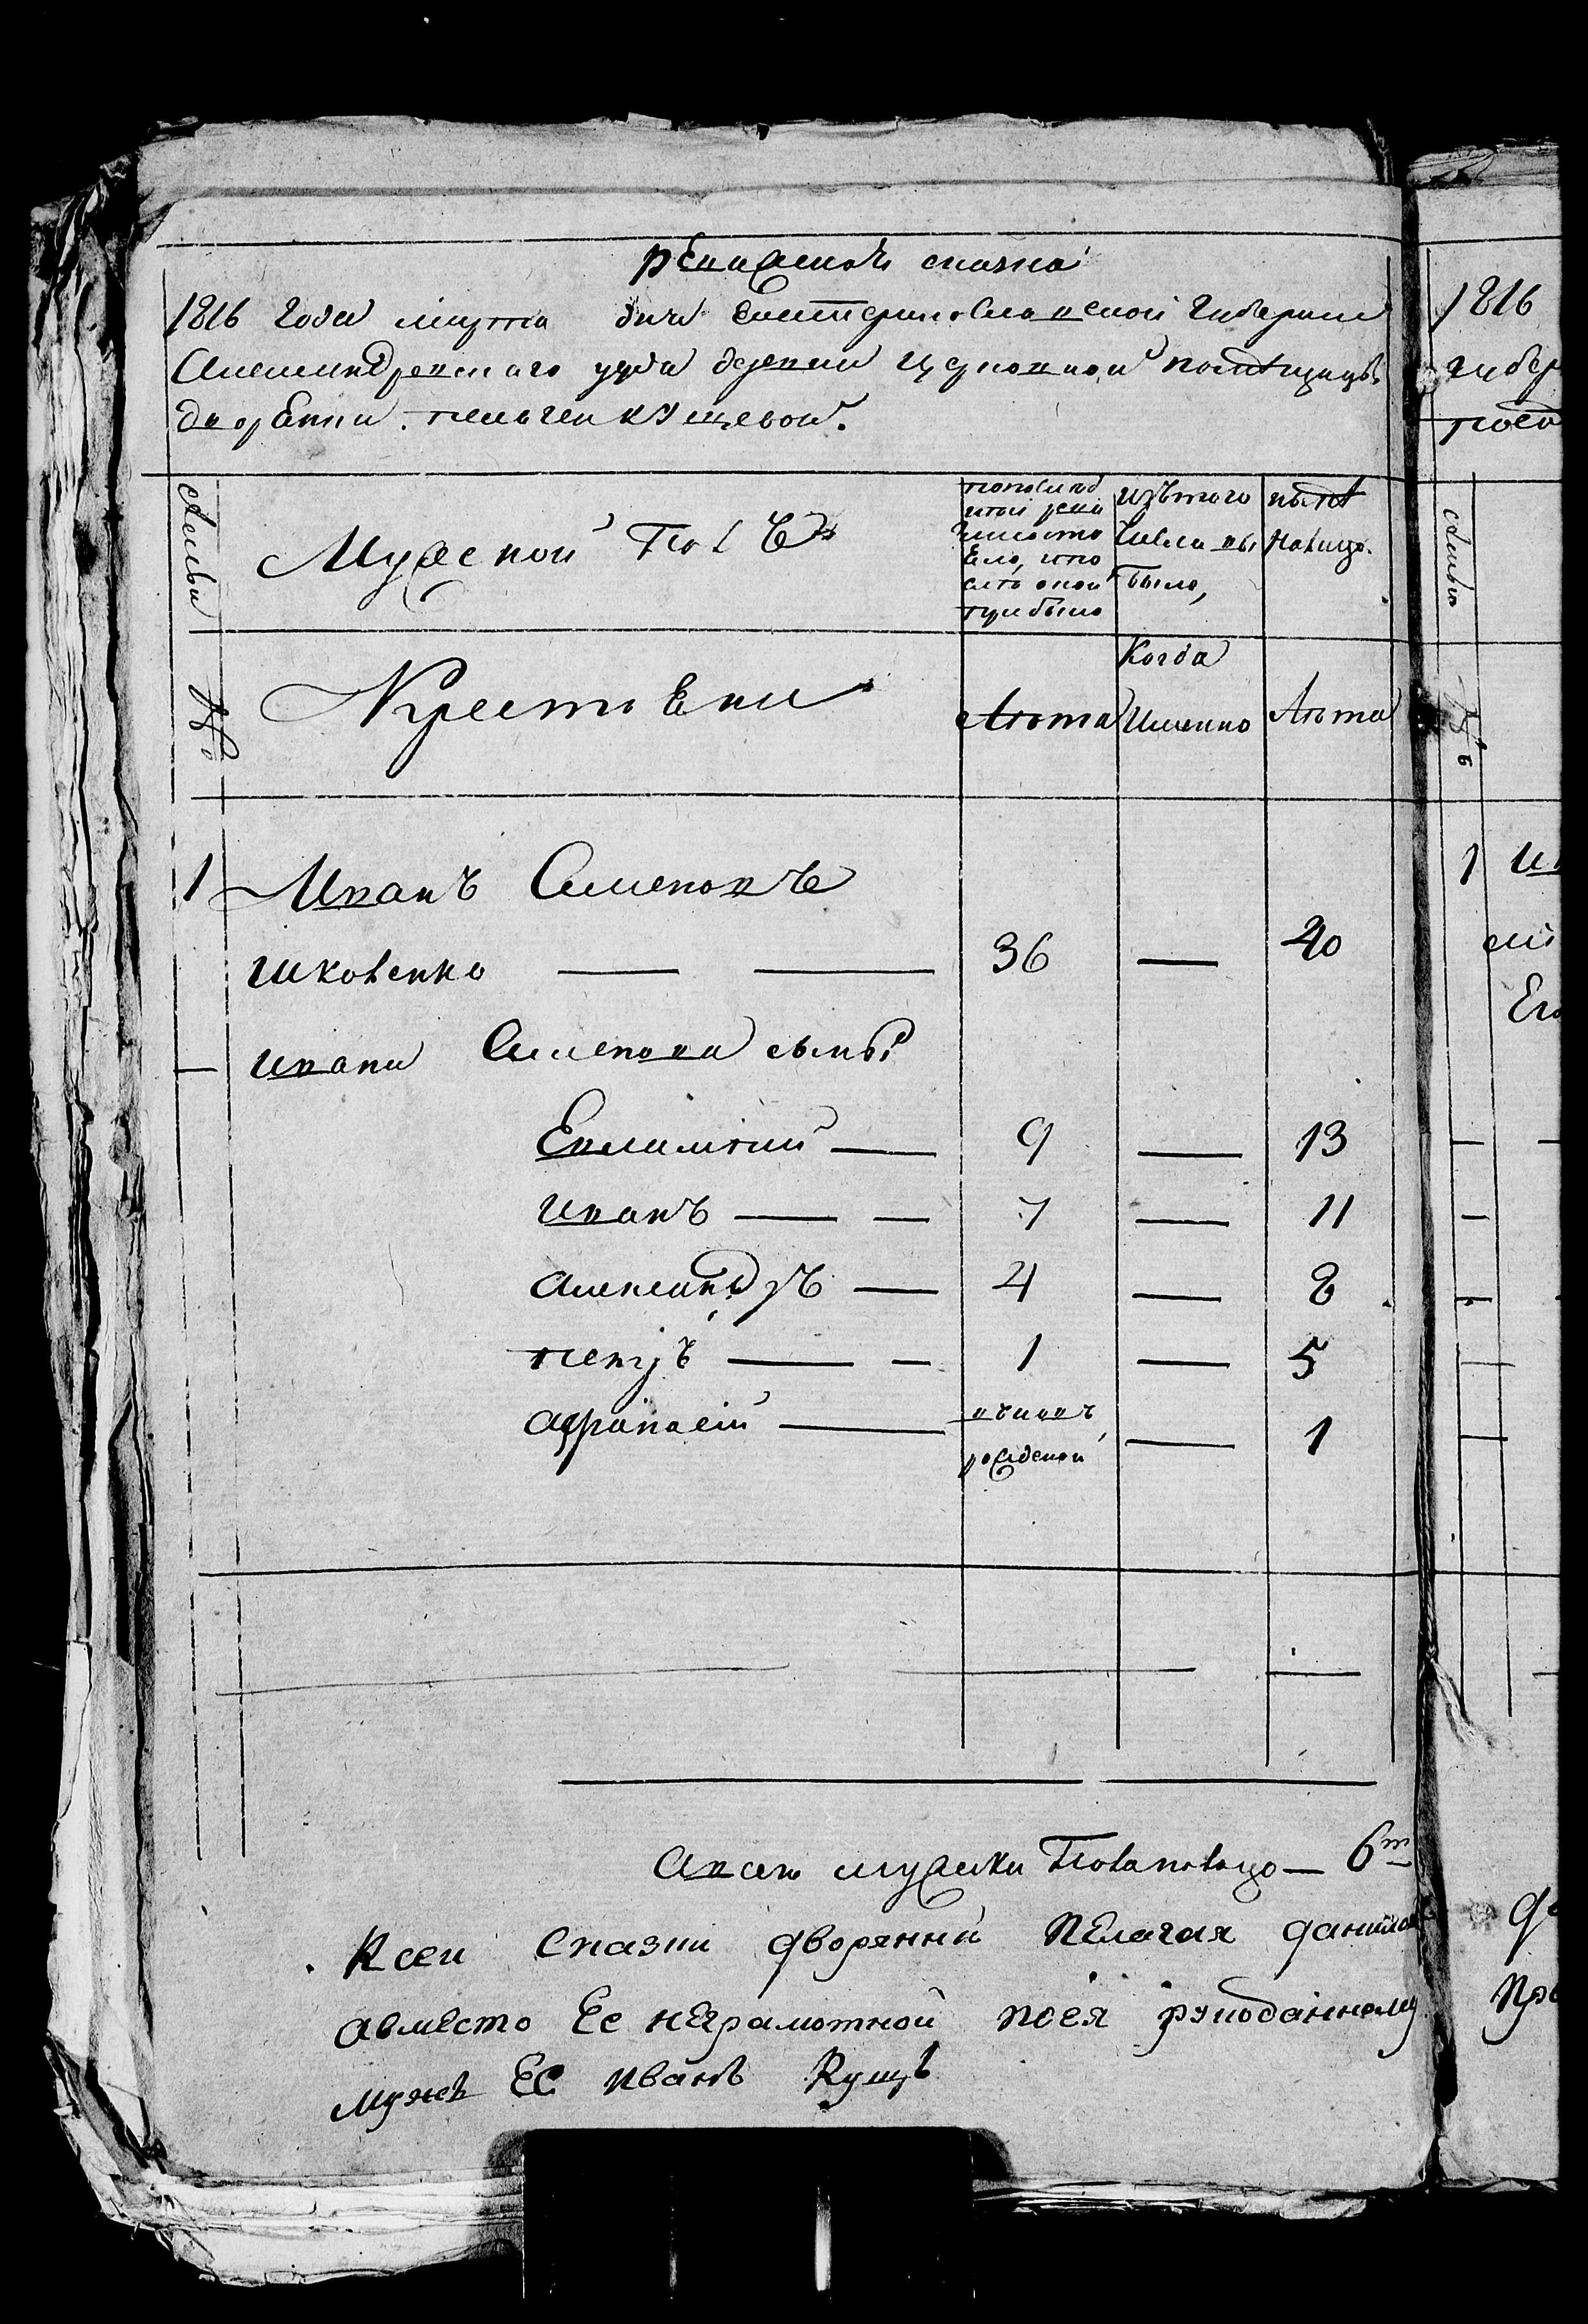 ревизская сказка
1816 года марта дня Екатеринославской губернии
Александрийского уезда деревни помещицы
дворянки Пелагеи Кущевой.
семьи
Мужеской полъ
по последней ревизіи состояло, и после оной прибыло
изъ того числа выбыло,
ныне налицо.
№
Крестьяне
Лѣта
Когда Именно
Лѣта
1 Иванъ Семеновъ
Шковенко 36 — 40
Ивана Семенова сыны
Евлампий — 9 — 13
Иванъ — 7 — 11
Александръ — 4 — 8
петръ — 1 — 5
афанасій — рожденой — 1
А всего мужска пола налицо — 6
К сей сказки дворянки Пелагея Данилова
а вместо Ее неграмотной
мужъ Ее Иванъ Кущъ
1816
губер
семьи
№
1
Его